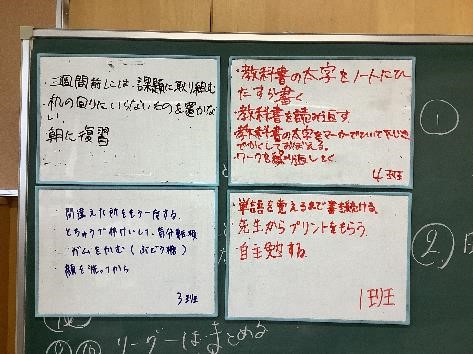 ・三週間前には、課題に取り組む
・机の回りにいらないものを置かない.
朝に復習
・教科書の太字をノートにひ
たすら書く
・教科書を読み返す.
・教科書の太字をマーカーで
でかくしておぼえる.
・ワークを繰り返しとく.
4班
間違えた所をもう一度する.
とちゅうで仲けいして、気分転換
ガムをかむ(ぶどう糖)
顔を洗ってから
3班
・単語を覚えるまで書き続ける.
・先生からプリントをもらう.
・自主勉する.
1班
①
②
リーダーは まとめる